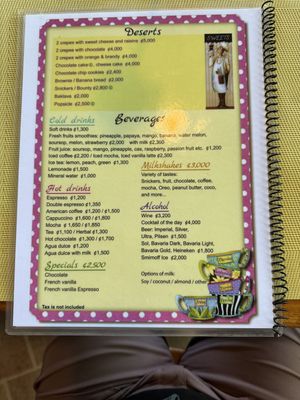 Deserts
2 crepes with sweet cheese and raisins ¢5,000
2 crepes with chocolate ¢4,000
2 crepes with orange & brandy ¢4,000
Chocolate cake, cheese cake ¢4,000
Chocolate chip cookies ¢2,400
Brownie / Banana bread ¢2,000
Snickers / Bounty ¢2,800
Baklava ¢2,000
Popsicle ¢2,500
SWEETS
Beverages
Cold drinks
Soft drinks ¢1,300
Fresh fruits smoothies: pineapple, papaya, mango, banana, water melon,
soursop, melon, strawberry ¢2,000 with milk ¢2,300
Fruit juice: soursop, mango, pineapple, cas, raspberry, passion fruit etc. ¢1,200
Iced coffee ¢2,200 / Iced mocha, Iced vanilla latte ¢2,300
Ice tea: lemon, peach, green ¢1,300
Lemonade ¢1,500
Mineral water ¢1,000
Milkshakes ¢3,000
Variety of tastes:
Snickers, fruit, chocolate, coffee,
mocha, Oreo, peanut butter, coco,
and more...
Hot drinks
Espresso ¢1,200
Double espresso ¢1,350
American coffee ¢1,200 / ¢1,500
Cappuccino ¢1,600 / ¢1,800
Mocha ¢1,650 / ¢1,850
Tea ¢1,100 / Herbal ¢1,300
Hot chocolate ¢1,300 / ¢1,700
Agua dulce ¢1,200
Agua dulce with milk ¢1,500
Alcohol
Wine ¢3,200
Cocktail of the day ¢4,000
Beer: Imperial, Silver,
Ultra, Pilsen ¢1,500
Sol, Bavaria Dark, Bavaria Light,
Bavaria Gold, Heineken ¢1,800
Smirnoff Ice ¢2,000
Specials ¢2,500
Chocolate
French vanilla
French vanilla Espresso
Options of milk:
Soy / coconut / almond / other
Tax is not included